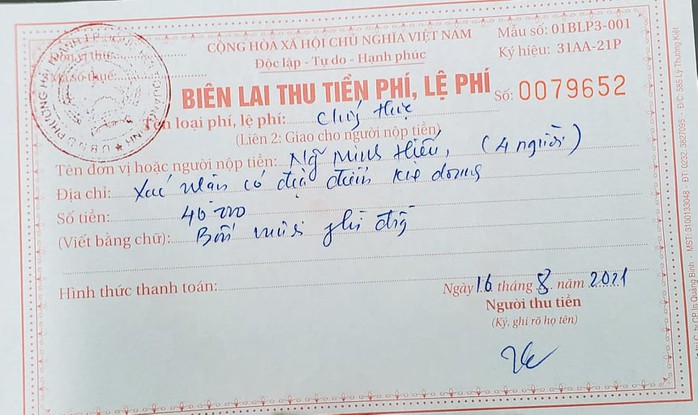 CỘNG HÒA XÃ HỘI CHỦ NGHĨA VIỆT NAM
Độc lập - Tự do - Hạnh phúc
Mẫu số: 01BLP3-001
Ký hiệu: 31AA-21P
Đơn vị thu:
Mã số thuế:
BIÊN LAI THU TIỀN PHÍ, LỆ PHÍ
Số: 0079652
Tên loại phí, lệ phí: Chứng thực
(Liên 2: Giao cho người nộp tiền)
Tên đơn vị hoặc người nộp tiền: Ng Minh Hiếu, (4 người)
Địa chỉ: Xác nhận có đặc điểm
Số tiền: 40 000
(Viết bằng chữ): Bốn mươi
Hình thức thanh toán:
Ngày 16 tháng 8 năm 2021
Người thu tiền
(Ký, ghi rõ họ tên)
CP In Quảng Bình - MST: 3100133048 - ĐT: 0232.3827095 - Đ/C: 58B Lý Thường Kiệt